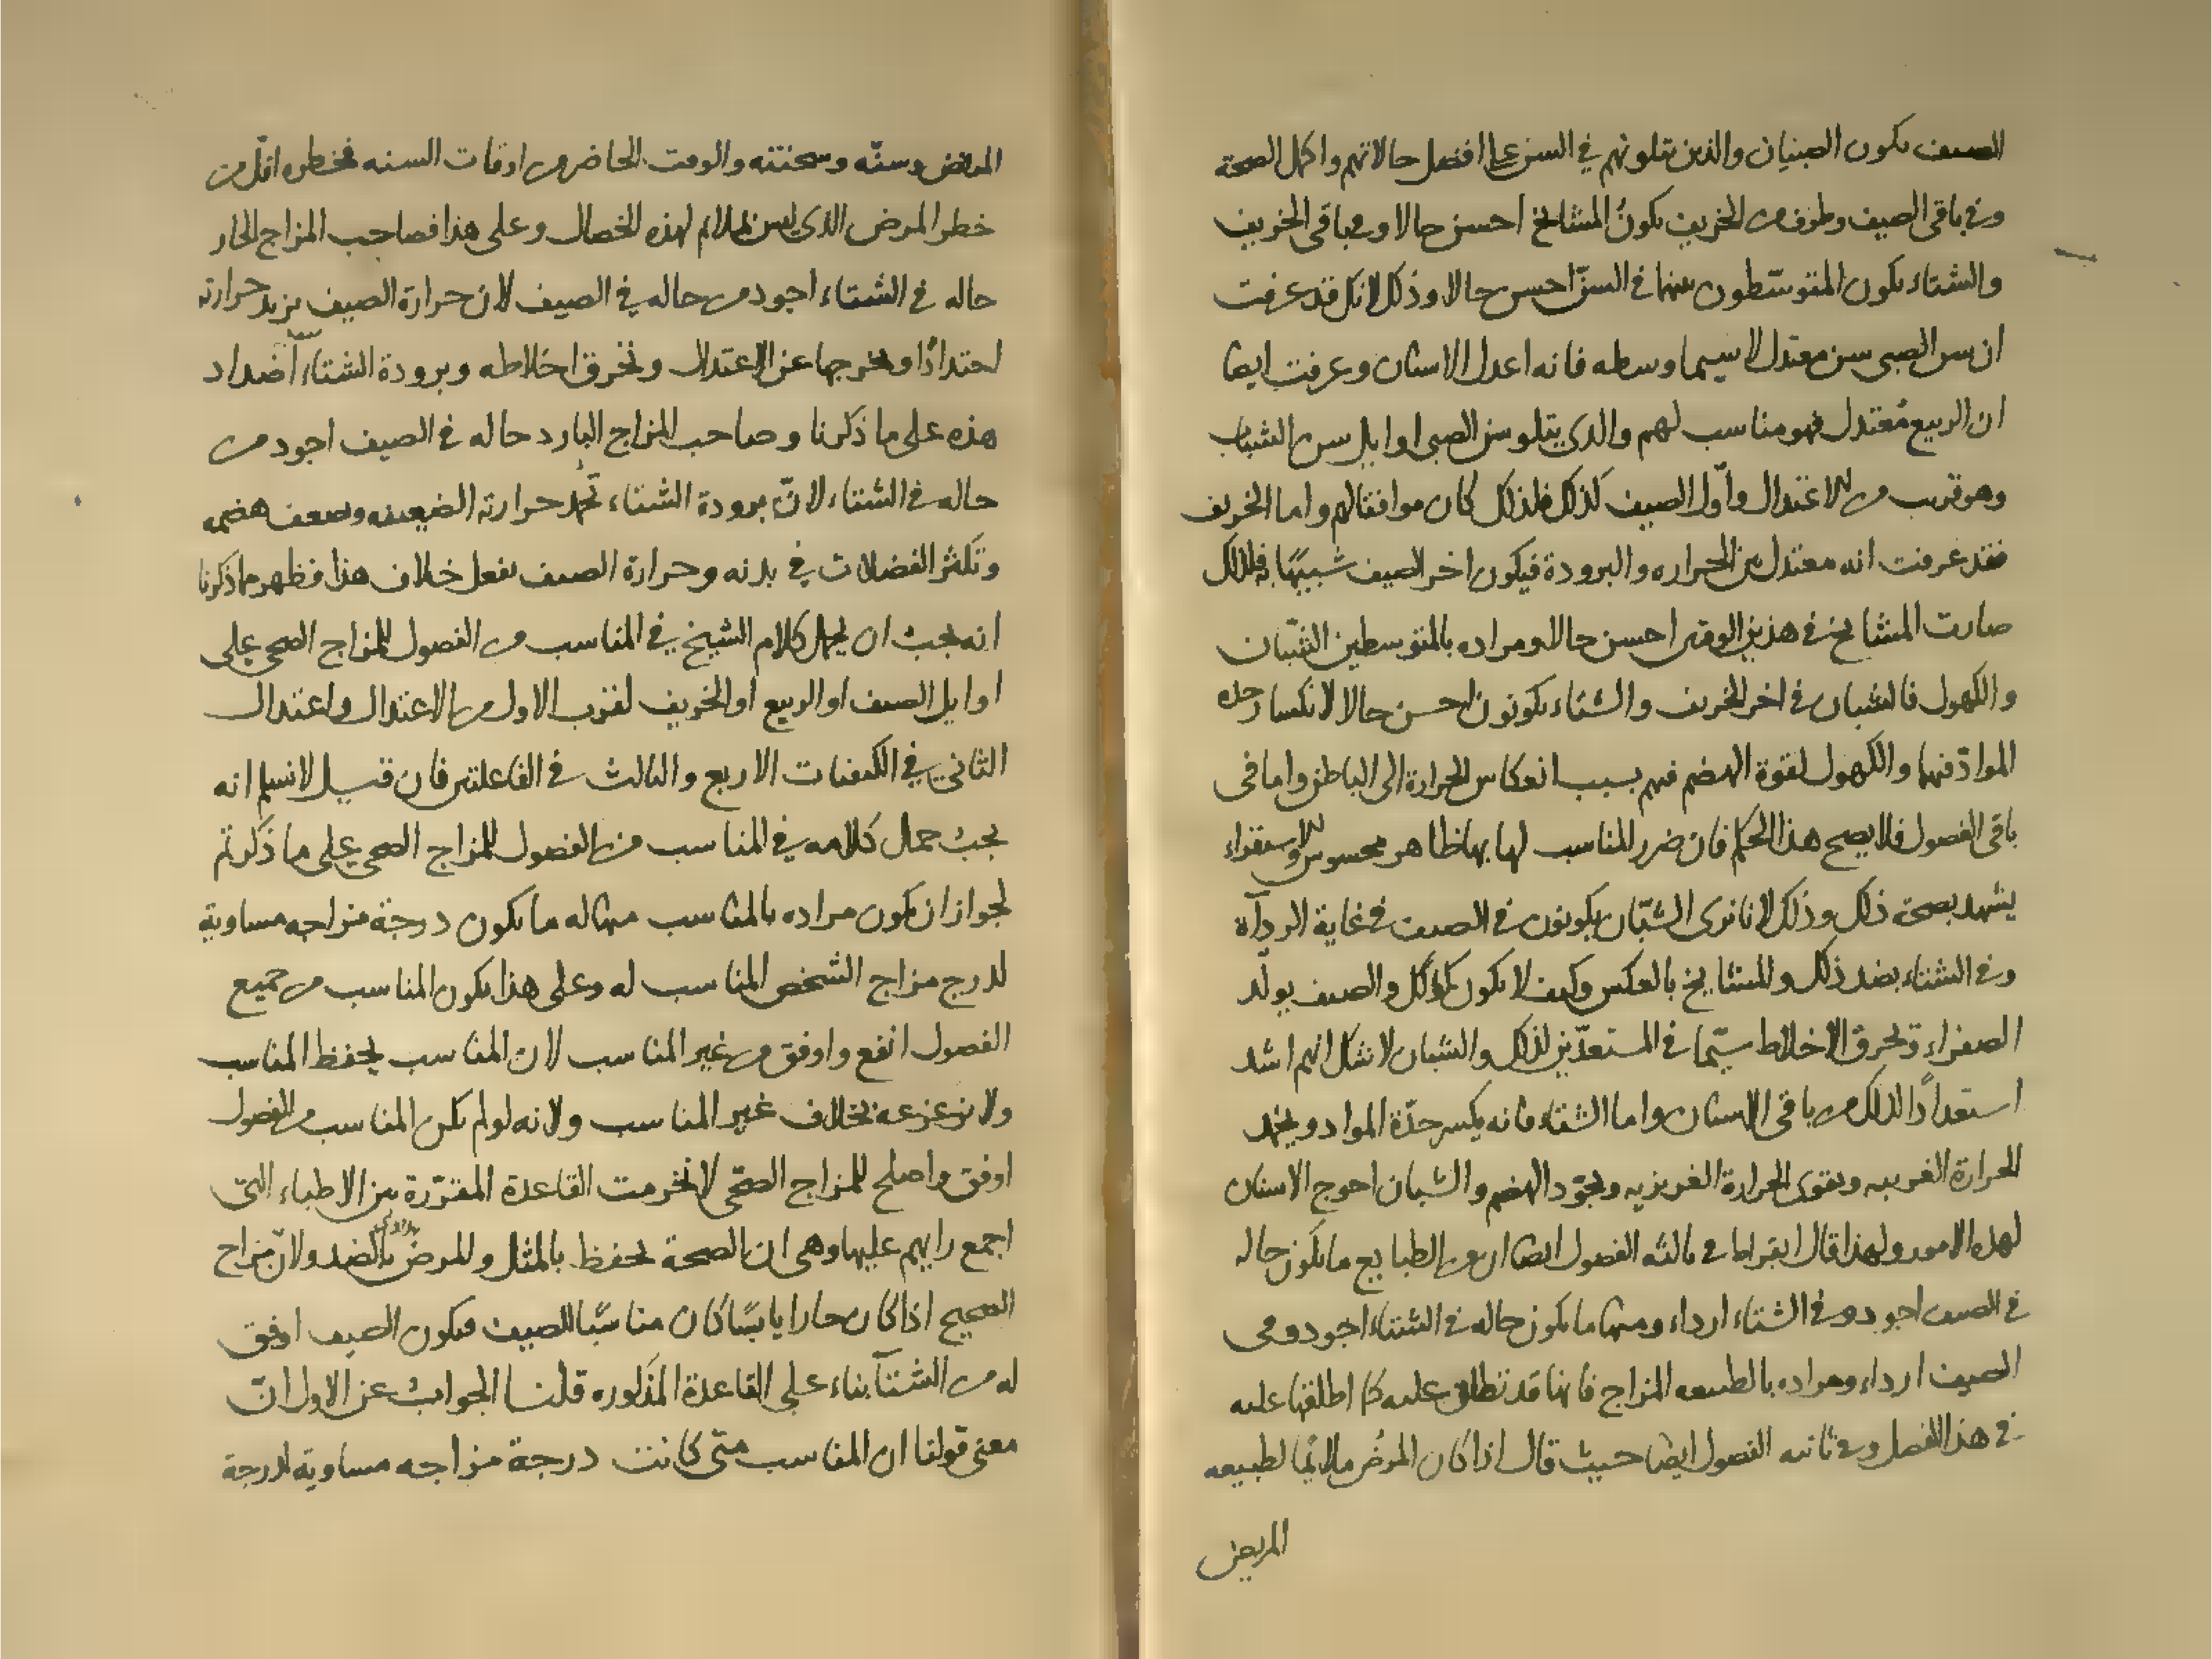 الصيف يكون الصبيان والذين يتلونهم في السن على افضل حالاتهم واكمل الصحة
وفي باقي الصيف وطرف من الخريف يكون المشائخ احسن حالا وفي باقي الخريف
والشتاء يكون المتوسطون بينهما في السنّ احسن حالا وذلك لانك قد عرفت
ان سن الصبى سن معتدل لا سيما وسطه فانه اعدل الاسنان وعرفت ايضا
ان الربيع مُعتدل فهو مناسب لهم والذي يتلو سن الصبى اوايل سن الشباب
وهو قريب من الاعتدال واوّل الصيف كذلك فلذلك كان موافقا لهم واما الخريف
فقد عرفت انه معتدل بين الحراره والبرودة فيكون اخر الصيف شبيهًا به فلذلك
صارت المشايخ في هذين الوقتين احسن حالا ومراده بالمتوسطين الشبّان
والكهول فالشبان في اخر الخريف والشتاء يكونون احسن حالا لانكسار حده
الموادّ فيها والكهول لقوة الهضم فيهم بسبب انعكاس الحرارة الى الباطن واما في
باقي الفصول فلا يصح هذا الحكم فان ضرر المناسب لها بها ظاهر محسوس والاستقراء
يشهد بصحة ذلك وذلك لانا نرى الشبّان يكونون في الصيف في غاية الرداآة
وفي الشتاء بضد ذلك وللمشايخ بالعكس وكيف لا يكون كذلك والصيف يولّد
الصفراء وتحرق الاخلاط سيّما في المستعدّين لذلك والشبان لا شك انهم اشد
استعدادًا لذلك من باقي الاسنان واما الشتاء فانه يكسر حدّة المواد ويخمد
الحرارة الغريبه ويقوى الحرارة الغريزيه ويجوّد الهضم والشبان احوج الاسنان
لهذه الامور ولهذا قال ابقراط في ثالثه الفصول ايضا ان من الطبايع ما يكون حاله
في الصيف اجود وفي الشتاء ارداء ومنها ما يكون حاله في الشتاء اجود وفي
الصيف ارداء ومراده بالطبيعه المزاج فانها قد تطلق عليه كما اطلقها عليه
في هذا الفصل وفي ثانيه الفصول ايضا حيث قال اذا كان المرضُ ملائمًا لطبيعه
المريض
المريض وسنّه وسحنته والوقت الحاضر من اوقات السنه فخطره اقلّ من
خطر المرض الذي ليس بملائم لهذه الخصال وعلى هذا فصاحب المزاج الحار
حاله في الشتاء اجود من حاله في الصيف لان حرارة الصيف يزيد حرارته
احتدادًا ويخرجها عن الاعتدال وتحرق اخلاطه وبرودة الشتاء اضداد
هذه على ما ذكرنا وصاحب المزاج البارد حاله في الصيف اجود من
حاله في الشتاء لانّ برودة الشتاء تُخمد حرارته الضعيفه ويضعف هضمه
وتكثر الفضلات في بدنه وحرارة الصيف يفعل خلاف هذا فظهر مما ذكرنا
انه يجب ان يحمل كلام الشيخ في المناسب من الفصول للمزاج الصحي على
اوايل الصيف او الربيع او الخريف لقرب الاول من الاعتدال واعتدال
الثاني في الكيفيات الاربع والثالث في الفاعلتين فان قيل لا نسلم انه
يجب حمل كلامه في المناسب من الفصول للمزاج الصحي على ما ذكرتم
لجواز ان يكون مراده بالمناسب مثاله ما يكون درجة مزاجه مساوية
لدرج مزاج الشخص المناسب له وعلى هذا يكون المناسب من جميع
الفصول انفع واوفق من غير المناسب لان المناسب يحفظ المناسب
ولا يزعزعه بخلاف غير المناسب ولانه لو لم يكن المناسب من الفصول
اوفق واصلح للمزاج الصحّي لانخرمت القاعدة المقرّرة بين الاطباء التي
اجمع رايهم عليها وهي ان الصحة تحفظ بالمثل وللمرض بالضد ولانّ مزاج
الصحيح اذا كان حارا يابسًا كان مناسبًا للصيف فيكون الصيف اوفق
له من الشتآ بناء على القاعدة المذكوره قلنا الجواب عن الاول انّ
معنى قولنا ان المناسب متى كانت درجة مزاجه مساوية لدرجة